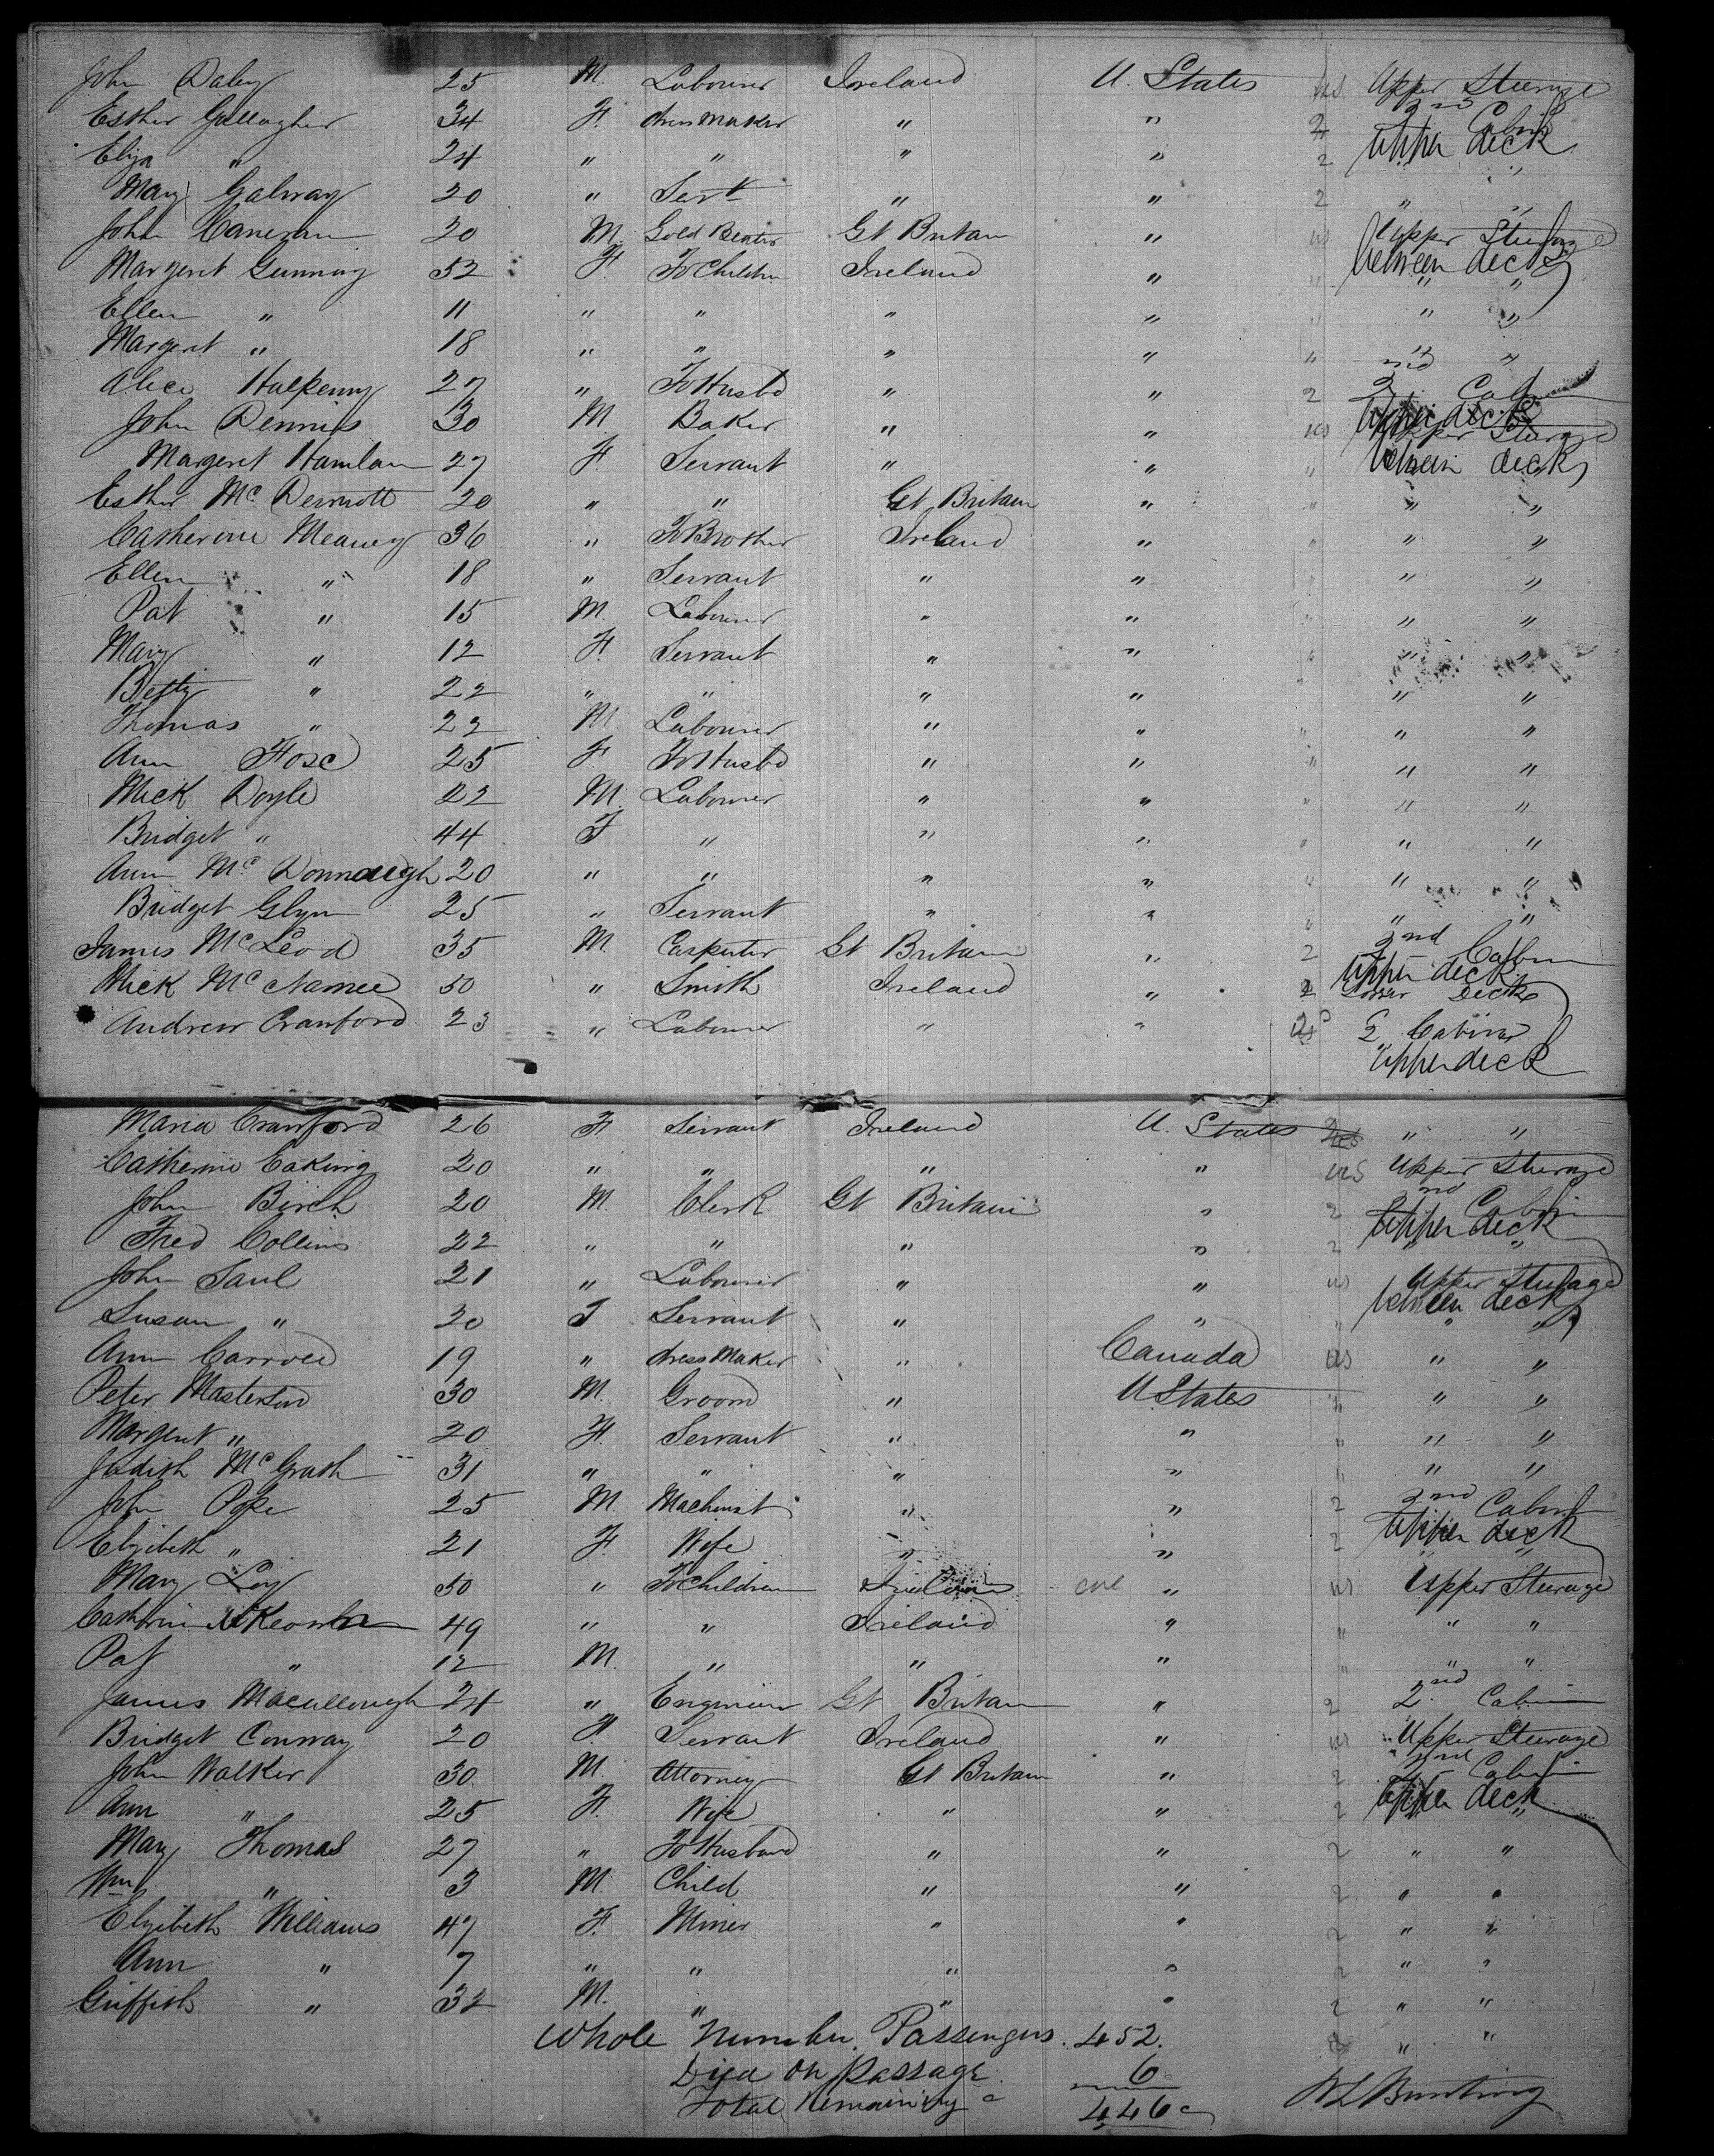 John Daley 25 M. Labourer Ireland U. States us Upper Steerage
Esther Gallagher 34 F. dress maker " " 2 2nd Cabin
Eliza " 24 " " " " 2 Upper deck
Mary Galway 20 " Servt " " 2 " "
John Cameran 20 M. Gold Beater Gt Britain " us Upper Steerage
Margeret Gunning 52 F. To Children Ireland " " between decks
Ellen " 11 " " " " " " "
Margeret " 18 " " " " " " "
Alice Halpenny 27 " To Husbd " " 2 2nd Cabin
Upper deck
John Dennis 30 M. Baker " " us Upper Steerage
Margeret Hamlan 27 F. Servant " " " between decks
Esther McDermott 20 " " Gt Britain " " " "
Catherine Meaney 36 " To Brother Ireland " " " "
Ellen " 18 " Servant " " " " "
Pat " 15 M. Labourer " " " " "
Mary " 12 F. Servant " " " " "
Betty " 22 " " " " " "
Thomas " 22 M. Labourer " " " " "
Ann Foxe 25 F. To Husbd " " " " "
Mick Doyle 22 M. Labourer " " " " "
Bridget " 44 F " " " " " "
Ann McDonnaugh 20 " " " " " " "
Bridget Glynn 25 " Servant " " " " "
James McLeod 35 M. Carpenter Gt Britain " 2 2nd Cabin
Upper deck
Mick McNamee 50 " Smith Ireland " 2 Lower Decks
Andrew Cranford 23 " Labourer " " 2 Cabin
Upper deck
Maria Cranford 26 F. Servant Ireland U. States " "
Catherine Eaking 20 " " " " us Upper Steerage
John Birch 20 M. Clerk Gt Britain " 2 2nd Cabin
Upper deck
Fred Collins 22 " " " " 2 " "
John Saul 21 " Labourer " " us Upper Steerage
between decks
Susan " 20 F Servant " " " " "
Ann Carroll 19 " dress Maker " Canada us " "
Peter Masterson 30 M. Groom " U. States " " "
Margeret " 20 F. Servant " " " " "
Judith McGrath 31 " " " " " " "
John Pope 25 M. Machinist " " 2 2nd Cabin
Elizibeth " 21 F. Wife " " 2 Upper deck
Mary Loy 50 " To Children " us Upper Steerage
49 " " Ireland " " " "
Pat " 12 M. " " " " " "
James Macullough 24 " Engineer Gt Britain " 2 2nd Cabin
Bridget Conway 20 F. Servant Ireland " us Upper Steerage
John Walker 30 M. Attorney Gt Britain " 2 2nd Cabin
Ann " 25 F. Wife " " 2 Upper deck
Mary Thomas 27 " To Husband " " 2 " "
Wm " 3 M. Child " " 2 " "
Elizibeth Williams 47 F. Miner " " 2 " "
Ann " 7 " " " " 2 " "
Griffith " 32 M. " " " 2 " "
Whole Number Passengers. 452. " "
Died on Passage. 6
Total Remaining 446